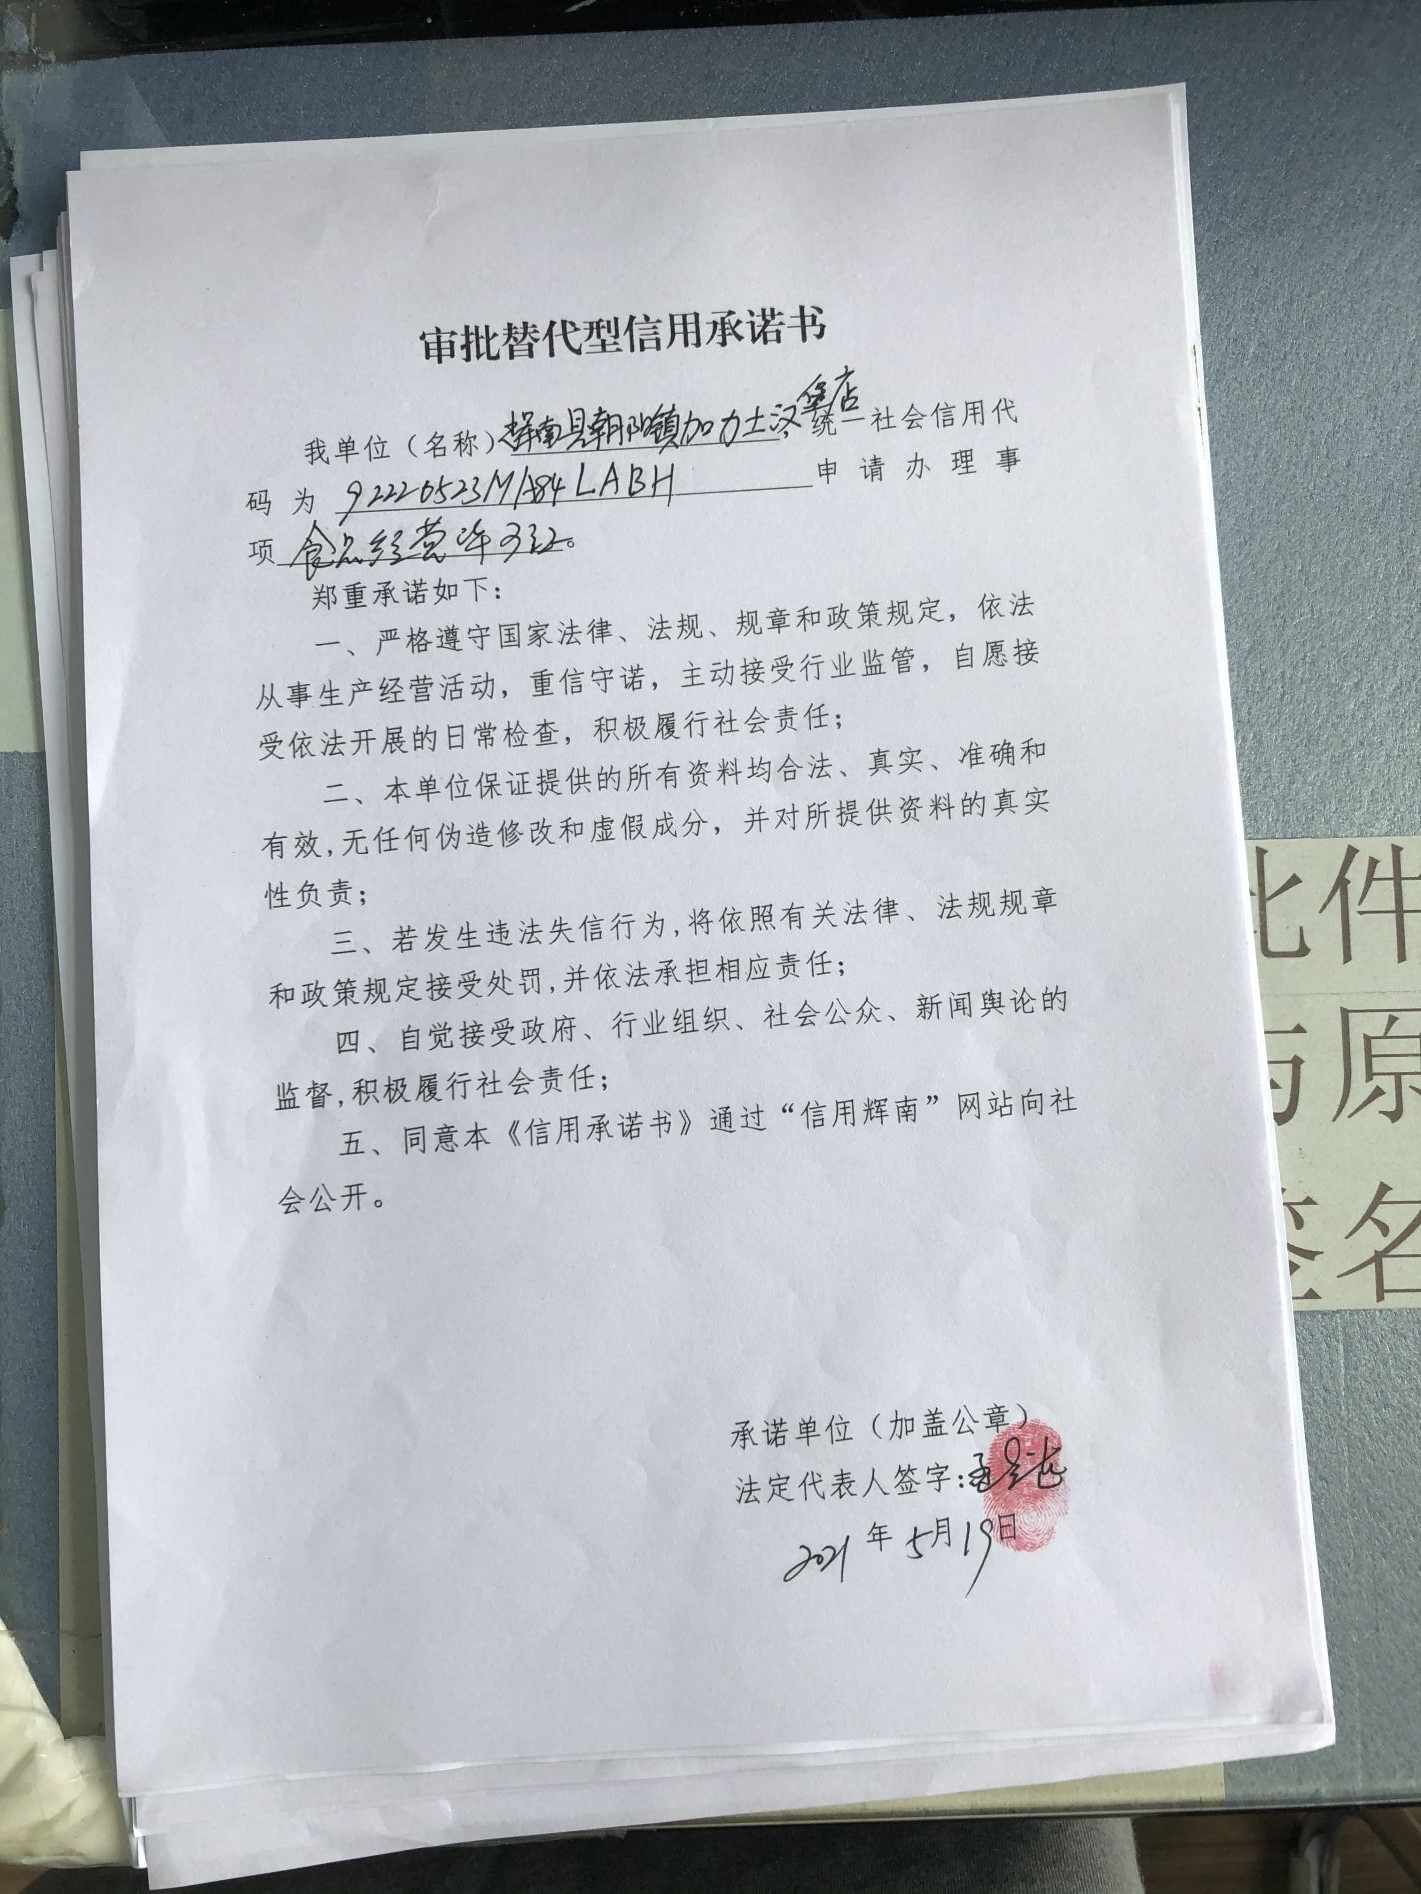 审批替代型信用承诺书
我单位（名称）辉南县朝阳镇加力士汉堡店统一社会信用代
码为 92220523MA84LABH 申请办理事
项 食品经营许可证。
郑重承诺如下：
一、严格遵守国家法律、法规、规章和政策规定，依法
从事生产经营活动，重信守诺，主动接受行业监管，自愿接
受依法开展的日常检查，积极履行社会责任；
二、本单位保证提供的所有资料均合法、真实、准确和
有效,无任何伪造修改和虚假成分，并对所提供资料的真实
性负责；
三、若发生违法失信行为,将依照有关法律、法规规章
和政策规定接受处罚,并依法承担相应责任；
四、自觉接受政府、行业组织、社会公众、新闻舆论的
监督,积极履行社会责任；
五、同意本《信用承诺书》通过“信用辉南”网站向社
会公开。
承诺单位（加盖公章）
法定代表人签字:
2021年5月19日
此件
与原
签名